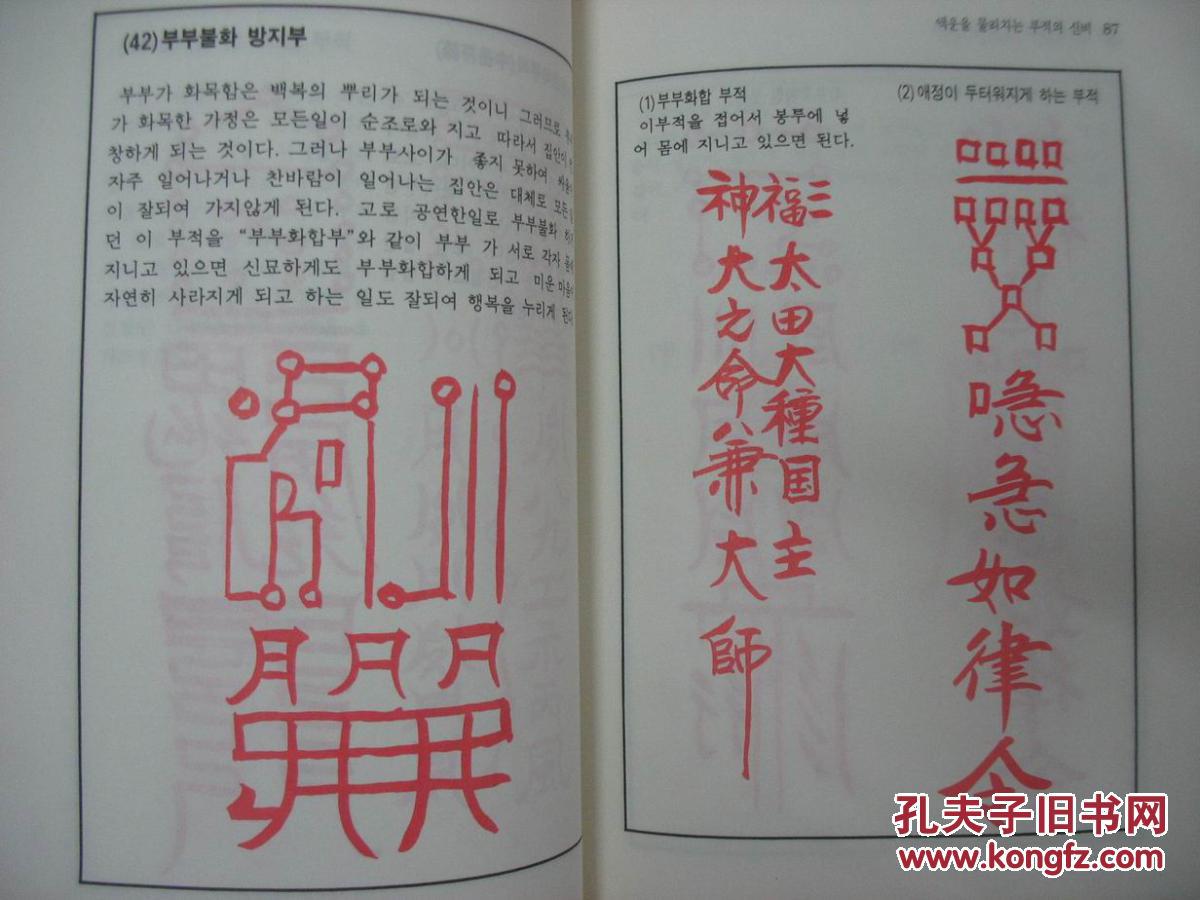 (42) 부부불화 방지부
부부가 화목함은 백복의 뿌리가 되는 것이니 그러므로
가 화목한 가정은 모든일이 순조로와 지고 따라서 집안이
창하게 되는 것이다. 그러나 부부사이가 좋지 못하여 싸움이
자주 일어나거나 찬바람이 일어나는 집안은 대체로 모든
이 잘되여 가지않게 된다. 고로 공연한일로 부부불화
던 이 부적을 “부부화합부”와 같이 부부 가 서로 각자 몸에
지니고 있으면 신묘하게도 부부화합하게 되고 미운 마음이
자연히 사라지게 되고 하는 일도 잘되여 행복을 누리게 된다
月 日 日
액운을 물리치는 부적의 신비 87
(1) 부부화합 부적
이부적을 접어서 봉투에 넣
어 몸에 지니고 있으면 된다.
二福太田大種国主
神大之命八兼大師
(2) 애정이 두터워지게 하는 부적
急如律令
孔夫子旧书网
www.kongfz.com